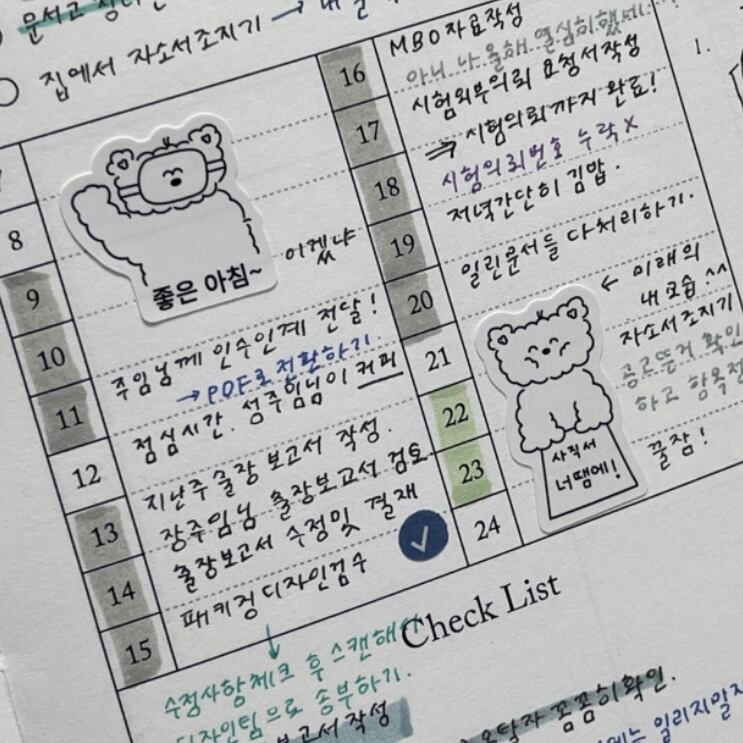 집에서 자소서조지기
8
9
10
11
12
13
14
15
좋은 아침~
이겠냐
주임님께 인수인계 전달!
→ PDF로 전환하기.
점심시간. 성주임님이 커피
지난주 출장 보고서 작성.
장주임님 출장보고서 검토.
출장보고서 수정및 결재
패키징디자인검수
16
17
18
19
20
21
22
23
24
MBO자료작성
아니 나 올해 열심히했네
시험외부의뢰 요청서작성
⇒ 시험의뢰까지 완료!
시험의뢰번호 누락 x
저녁간단히 김밥.
밀린문서들 다처리하기.
← 미래의
내모습 ^^
자소서조지기
공고뜬거 확인
하고 항목정
꿀잠!
사직서
너땜에!
1.
Check List
수정사항체크 후 스캔해서
디자인팀으로 송부하기.
보고서작성
꼼꼼히확인.